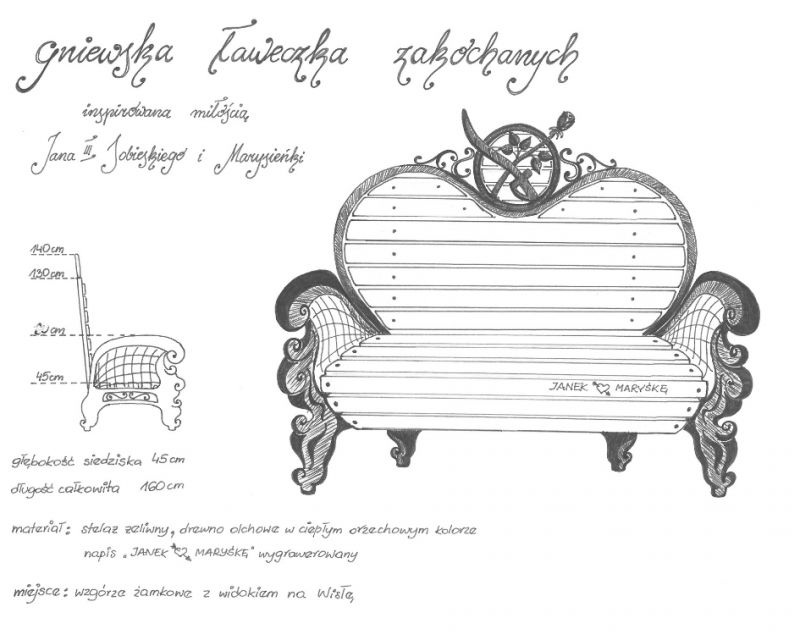 gniewska ławeczka zakochanych
inspirowana miłością
Jana III Sobieskiego i Marysieńki
140 cm
130 cm
cm
45 cm
JANEK MARYŚKĘ
głębokość siedziska 45 cm
długość całkowita 160 cm
materiał: stelaż żeliwny, drewno olchowe w ciepłym orzechowym kolorze
napis „JANEK MARYŚKĘ" wygrawerowany
miejsce: wzgórze zamkowe z widokiem na Wisłę